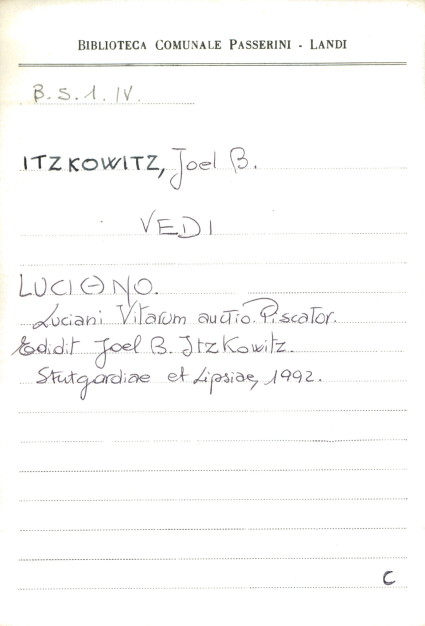 BIBLIOTECA COMUNALE PASSERINI - LANDI
B.S.1.IV.
ITZKOWITZ, Joel B.
VEDI
LUCIANO.
Luciani Vitarum auctio. Piscator.
Edidit Joel B. Itzkowitz.
Stutgardiae et Lipsiae, 1992.
C